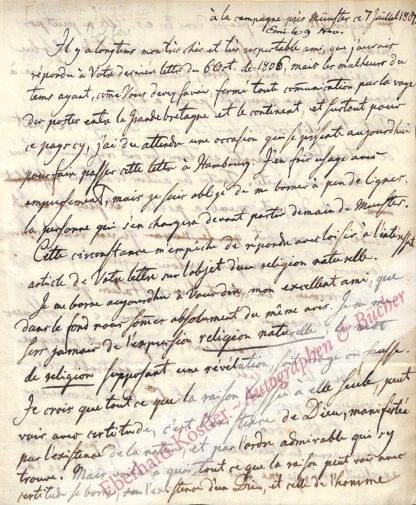 à la campagne près Münster ce 7 Juillet 1807.
Il y a longtems mon très cher et très respectable ami, que j'aurois
répondu à Votre dernière lettre du 6 Oct. de 1806, mais les malheurs du
tems ayant, come Vous devez savoir, fermé toute comunication par la voye
des postes entre la Grande bretagne et le continent, et surtout pour
ce pays cy, j'ai du attendre une occasion qui se présente aujourdhui
pour faire passer cette lettre à Hambourg. J'en fais usage avec
empressement, mais je suis obligé de me borner à peu de lignes,
la personne qui s'en chargera devant partir demain de Munster.
Cette circonstance m'empêche de repondre avec loisir à l'interessant
article de Votre lettre sur l'objet d'un religion naturelle.
Je me borne aujourdhui à Vous dire, mon excellent ami, que
dans le fond nous somes absolument du même avis. Je ne me
sers jamais de l'expression religion naturelle, le mot
de religion supposant une révélation, soit vraye ou fausse.
Je crois que tout ce que la raison, laissée à elle seule, peut
voir avec certitude, c'est l'existence de Dieu, manifestée
par l'existence de la nature, et par l'ordre admirable qui s'y
trouve. Mais, à quoi tout ce que la raison peut voir avec
certitude se borne, l'existence d'un Dieu, et celle de l'homme
Eberhard Köstler - Autographen & Bücher